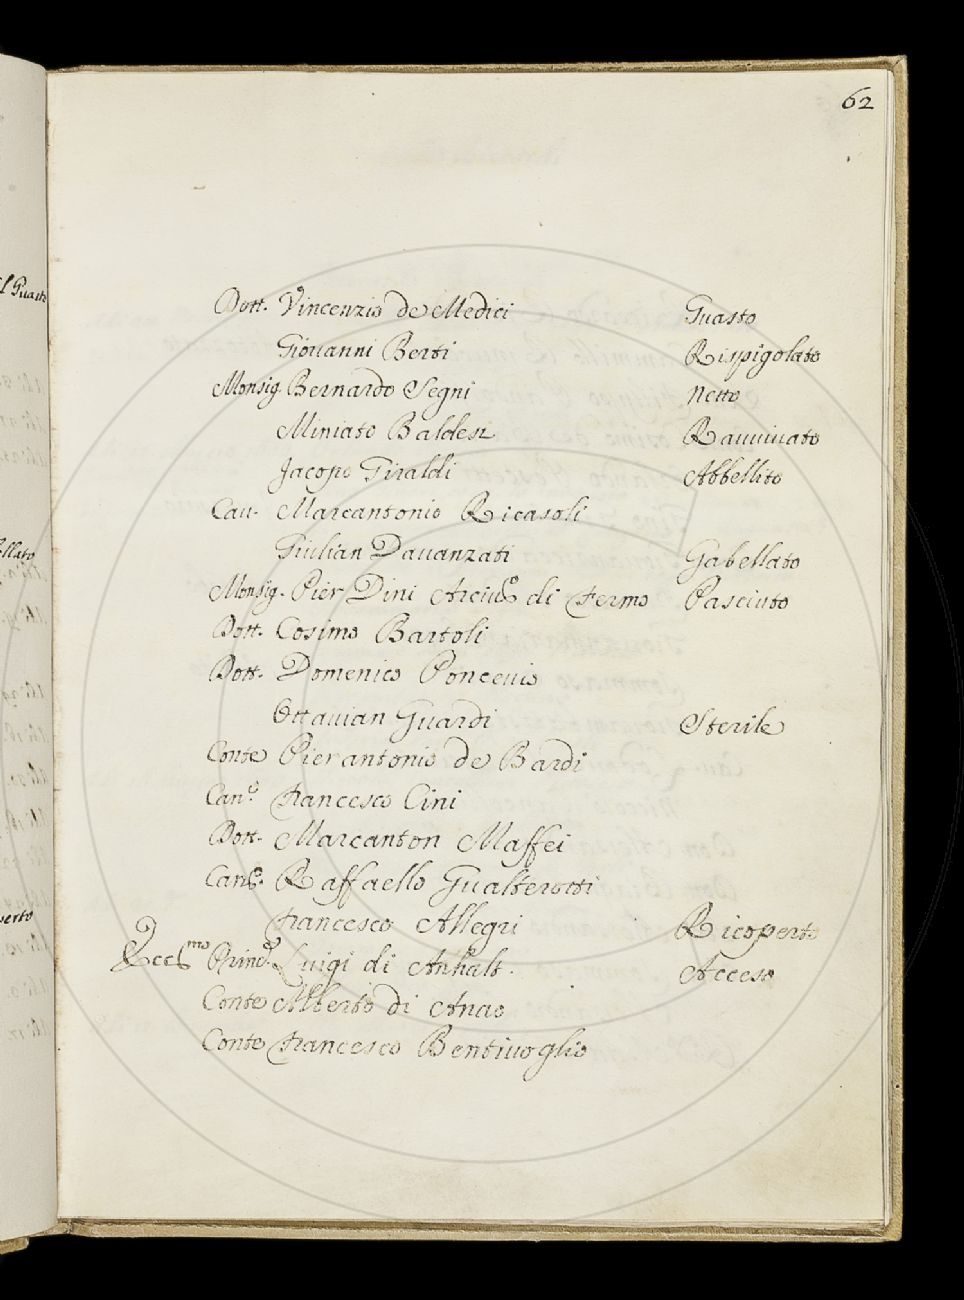 62
Dott. Vincenzio de Medici Guasto
Giouanni Berti Rispigolato
Monsig. Bernardo Segni Netto
Miniato Baldesi Rauuiuato
Jacopo Giraldi Abbellito
Cau. Marcantonio Ricasoli
Giulian Dauanzati Gabellato
Monsig. Pier Dini Arciuo di Fermo Pasciuto
Dott. Cosimo Bartoli
Dott. Domenico Ponceuio
Ottauian Guardi Sterile
Conte Pierantonio de Bardi
Can.o Francesco Cini
Dott. Marcanton Maffei
Raffaello Gualterotti
Francesco Allegri Ricoperto
Luigi di Anhalt. Acceso
Conte Alberto di Anao
Conte Francesco Bentiuoglio